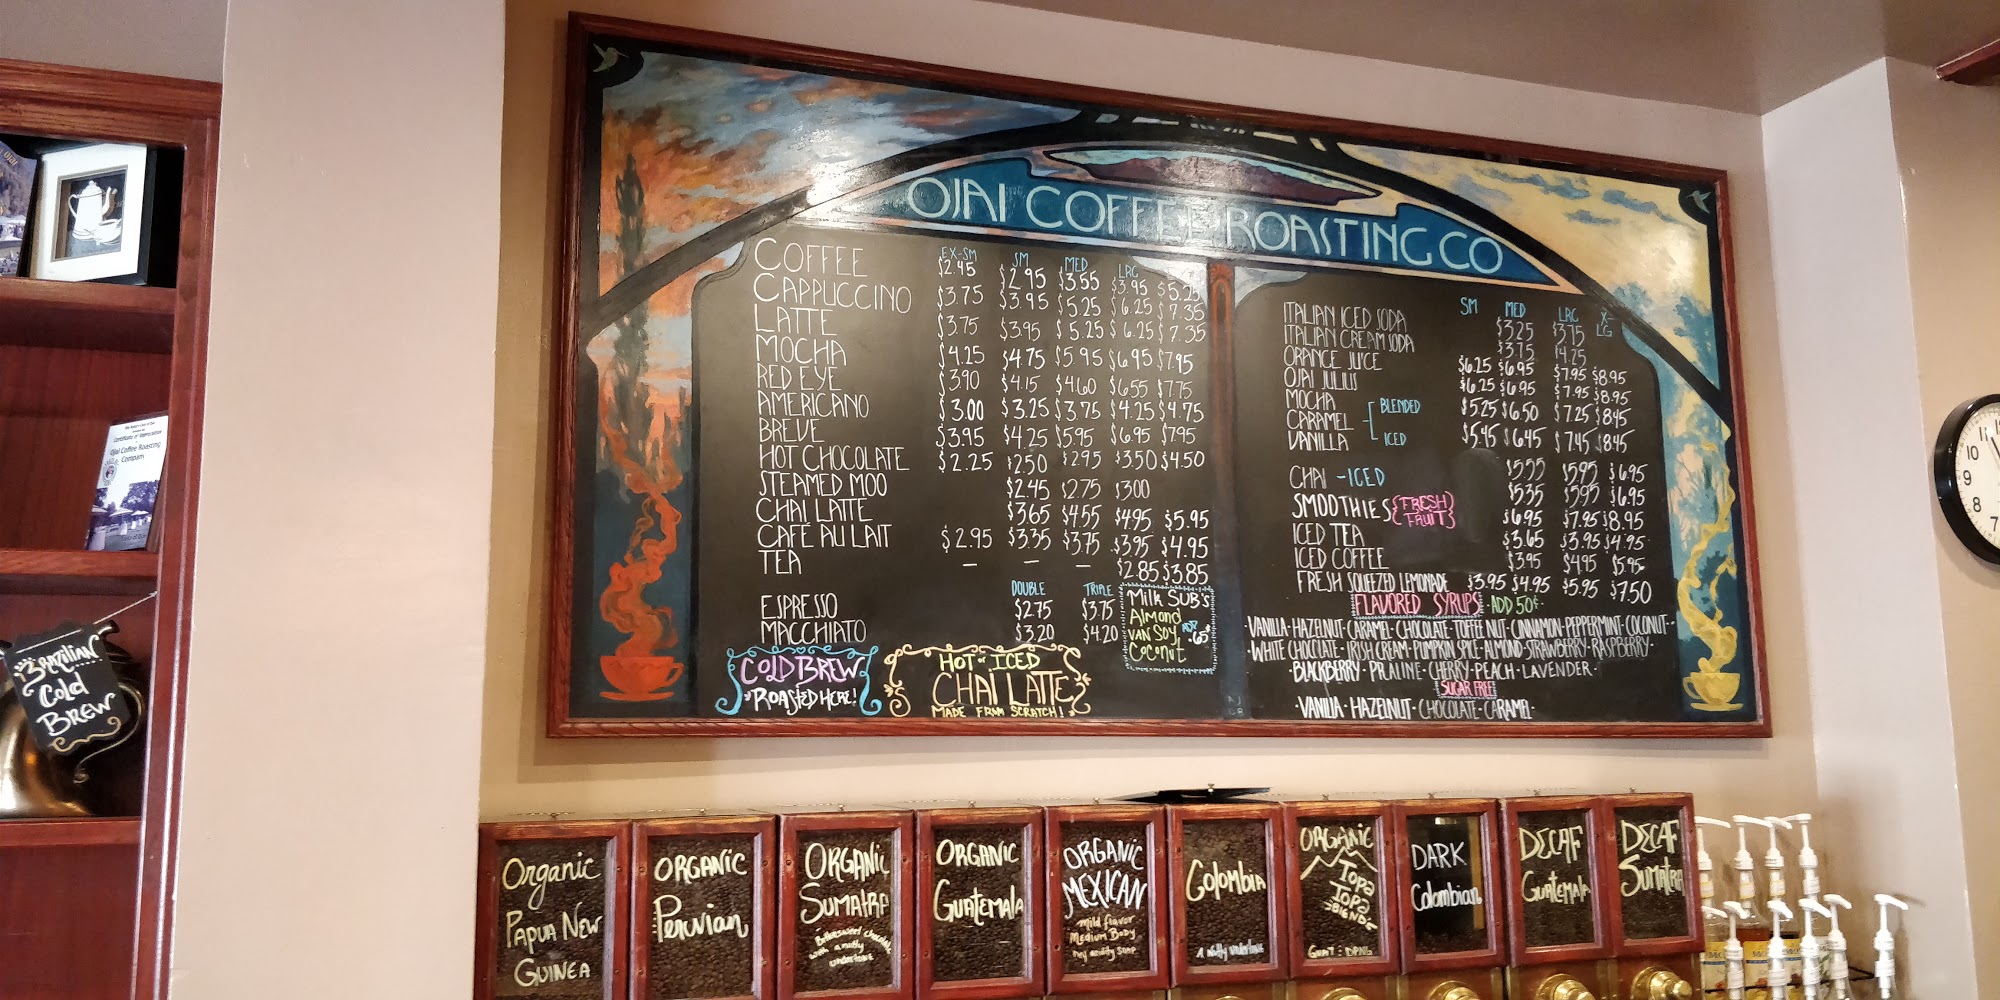 OJAI COFFEE ROASTING CO
EX-SM SM MED LRG
COFFEE $2.45 $2.95 $3.55 $3.95 $5.25
CAPPUCCINO $3.75 $3.95 $5.25 $6.25 $7.35
LATTE $3.75 $3.95 $5.25 $6.25 $7.35
MOCHA $4.25 $4.75 $5.95 $6.95 $7.95
RED EYE $3.90 $4.15 $4.60 $6.55 $7.75
AMERICANO $3.00 $3.25 $3.75 $4.25 $4.75
BREVE $3.95 $4.25 $5.95 $6.95 $7.95
HOT CHOCOLATE $2.25 $2.50 $2.95 $3.50 $4.50
STEAMED MOO $2.45 $2.75 $3.00
CHAI LATTE $3.65 $4.55 $4.95 $5.95
CAFE AU LAIT $2.95 $3.35 $3.75 $3.95 $4.95
TEA — — — $2.85 $3.85
DOUBLE TRIPLE
ESPRESSO $2.75 $3.75
MACCHIATO $3.20 $4.20
MILK SUB'S
Almond
VAN SOY
Coconut
.65
COLD BREW
ROASTED HERE!
HOT or ICED
CHAI LATTE
MADE FROM SCRATCH!
SM MED LRG X-LG
ITALIAN ICED SODA $3.25 $3.75
ITALIAN CREAM SODA $3.75 $4.25
ORANGE JUICE $6.25 $6.95 $7.95 $8.95
OJAI JULIUS $6.25 $6.95 $7.95 $8.95
MOCHA BLENDED $5.25 $6.50 $7.25 $8.45
CARAMEL
VANILLA ICED $5.45 $6.45 $7.45 $8.45
CHAI - ICED $5.55 $5.95 $6.95
$5.35 $5.95 $6.95
SMOOTHIES {FRESH FRUIT} $6.95 $7.95 $8.95
ICED TEA $3.65 $3.95 $4.95
ICED COFFEE $3.95 $4.95 $5.95
FRESH SQUEEZED LEMONADE $3.95 $4.95 $5.95 $7.50
FLAVORED SYRUPS - ADD 50¢
·VANILLA·HAZELNUT·CARAMEL·CHOCOLATE·TOFFEE NUT·CINNAMON·PEPPERMINT·COCONUT·
·WHITE CHOCOLATE·IRISH CREAM·PUMPKIN SPICE·ALMOND·STRAWBERRY·RASPBERRY·
BLACKBERRY·PRALINE·CHERRY·PEACH·LAVENDER·
SUGAR FREE
·VANILLA·HAZELNUT·CHOCOLATE·CARAMEL·
Ojai
Certificate of Appreciation
Ojai Coffee Roasting
Company
BRAZILIAN
Cold
BREW
10
9
8
7
Organic
PAPUA NEW
GUINEA
ORGANIC
Peruvian
ORGANIC
SUMATRA
Bittersweet chocolate
with a nutty
undertone
ORGANIC
GUATEMALA
ORGANIC
MEXICAN
mild flavor
MEDIUM BODY
Colombia
A nutty undertone
ORGANIC
TOPA
TOPA
DARK
Colombian
DECAF
GUATEMALA
DECAF
SUMATRA